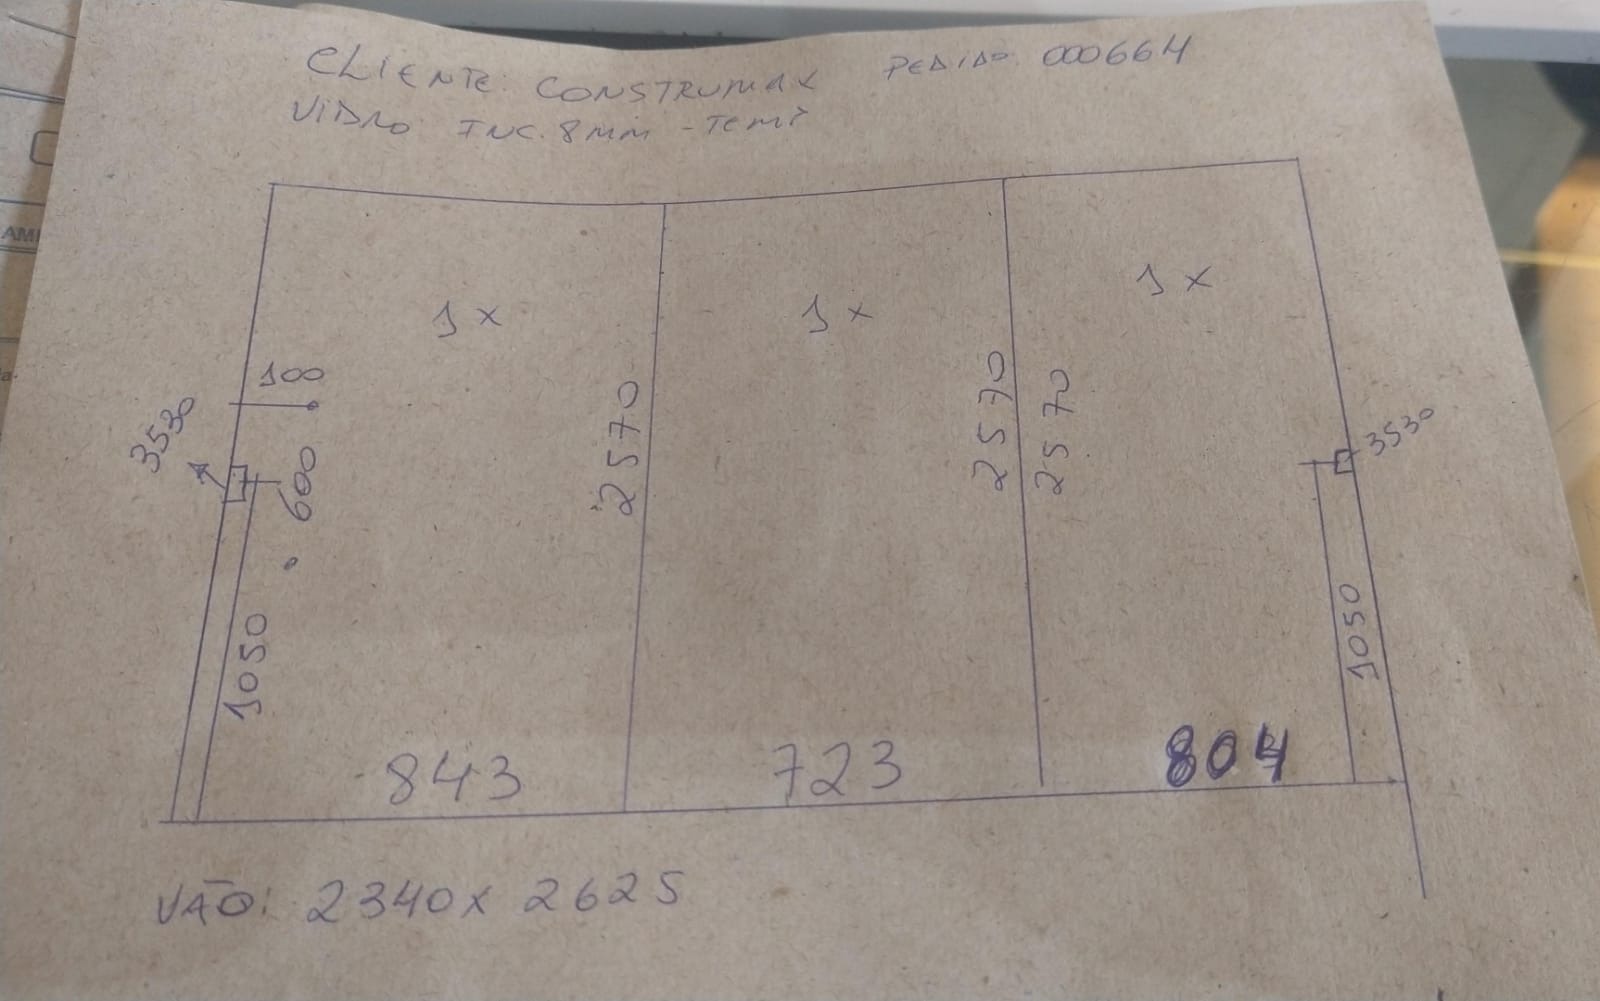 CLIENTE: CONSTRUMAX PEDIDO: 000664
VIDRO INC. 8MM - TEMP
1 x
1 x
1 x
100
3530
600
2570
2570
2570
3530
1050
1050
843
723
804
VÃO: 2340 x 2625
AM